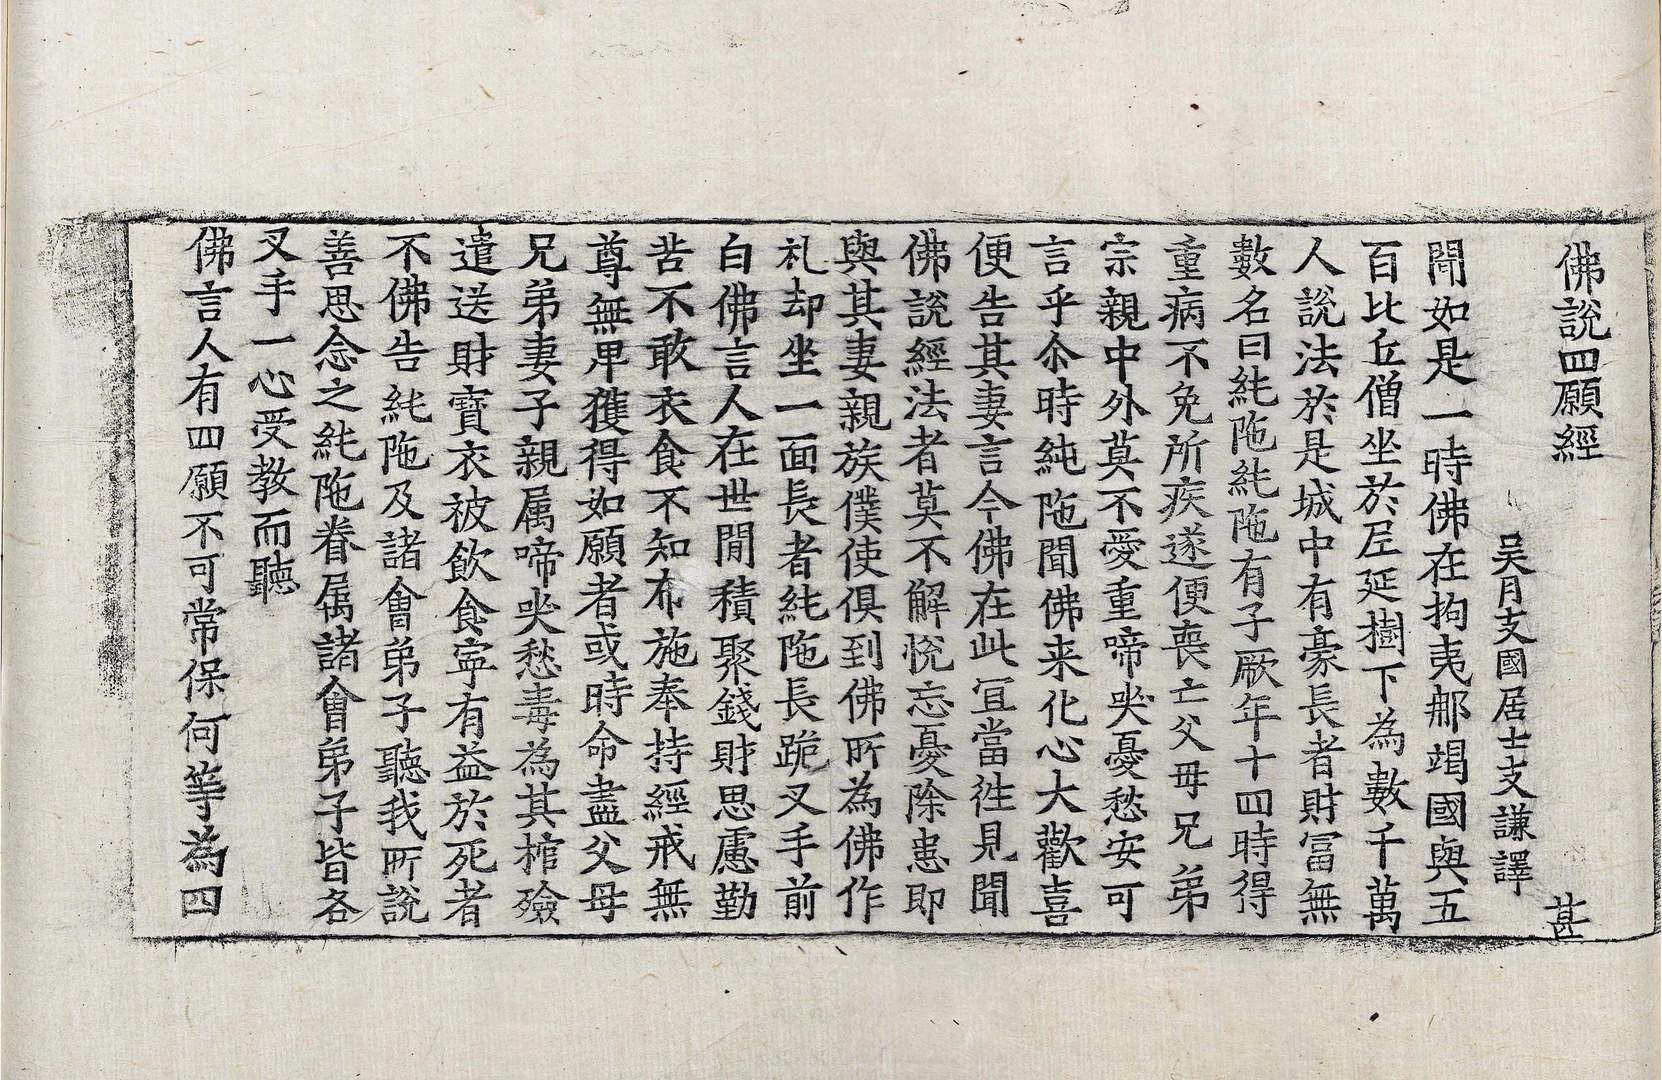 佛說四願經
甚
吳月支國居士支謙譯
聞如是一時佛在拘夷郍竭國與五
百比丘僧坐於尼延樹下為數千萬
人說法於是城中有豪長者財冨無
數名曰純陁純陁有子厥年十四時得
重病不免所疾遂便喪亡父母兄弟
宗親中外莫不愛重啼哭憂愁安可
言乎尒時純陁聞佛来化心大歡喜
便告其妻言今佛在此冝當往見聞
佛說經法者莫不解悅忘憂除患即
與其妻親族僕使俱到佛所為佛作
礼却坐一面長者純陁長跪叉手前
白佛言人在世閒積聚錢財思慮勤
苦不敢衣食不知布施奉持經戒無
尊無卑獲得如願者或時命盡父母
兄弟妻子親属啼哭愁毒為其棺殮
遣送財寶衣被飲食寧有益於死者
不佛告純陁及諸會弟子聽我所說
善思念之純陁眷属諸會弟子皆各
叉手一心受教而聽
佛言人有四願不可常保何等為四